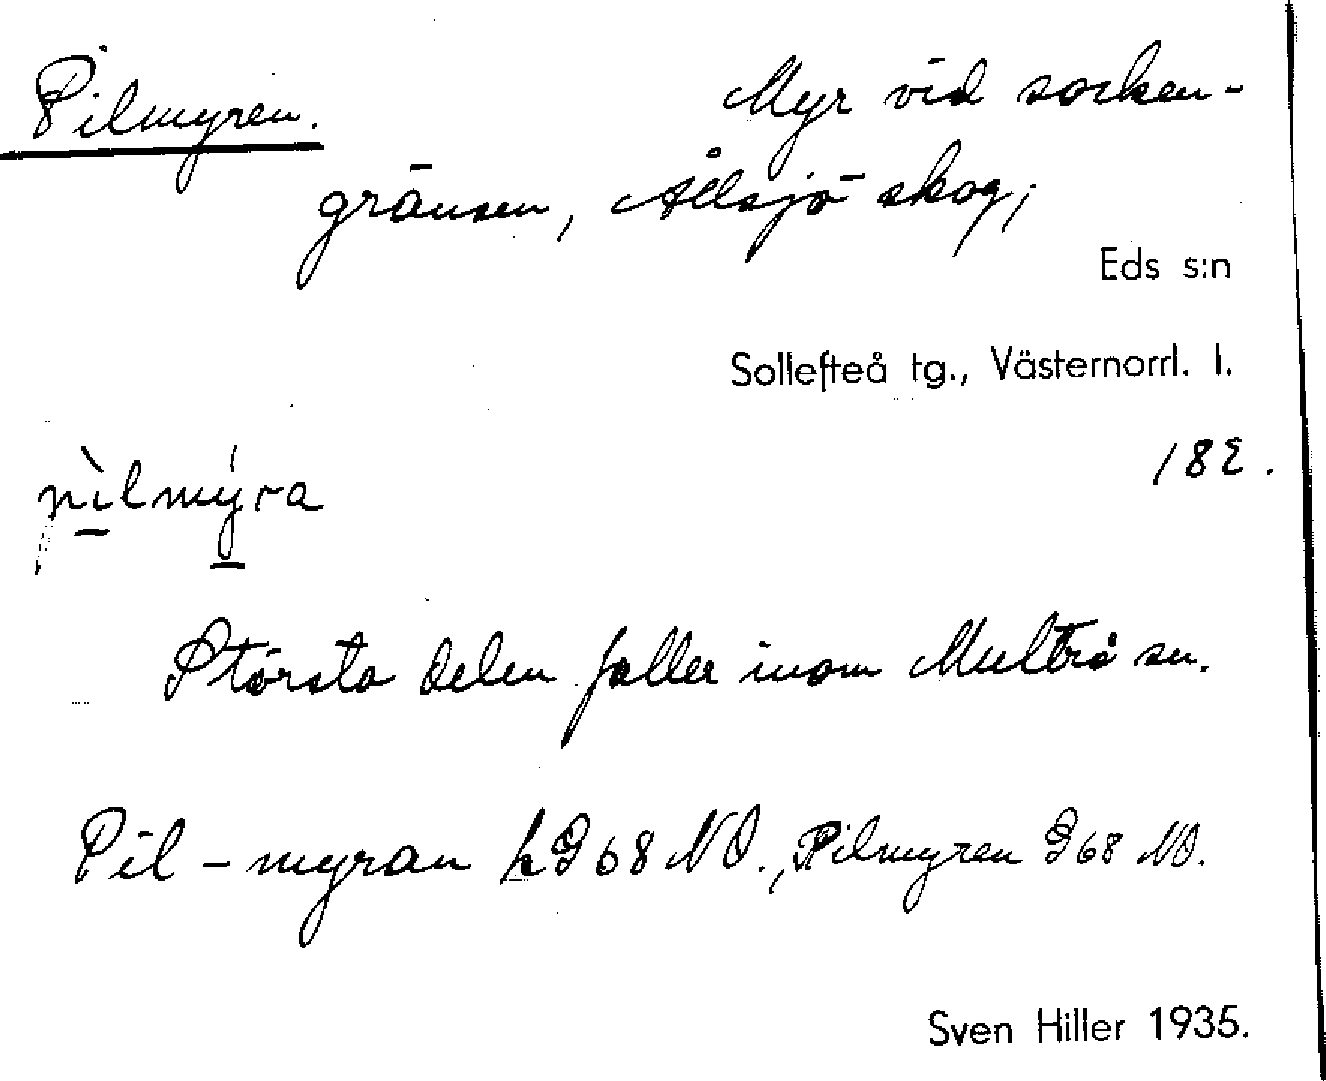 Pilmyren. Myr vid socken-
gränsen, Allsjö skog;
Eds s:n
Sollefteå tg., Västernorrl. l.
182.
pìlmýra
Största delen faller inom Multrå sn.
Pil-myran hG 68 NO., Pilmyren G 68 NO.
Sven Hiller 1935.